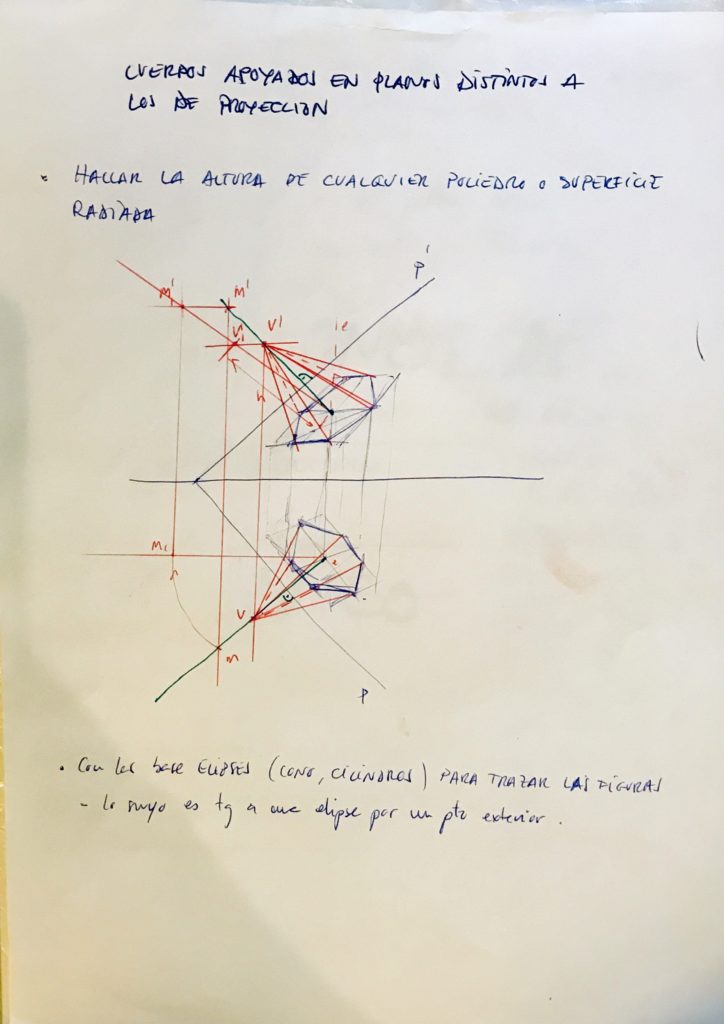 CUERPOS APOYADOS EN PLANOS DISTINTOS A
LOS DE PROYECCION
HALLAR LA ALTURA DE CUALQUIER POLIEDRO o SUPERFICIE
RADIADA
P'
M'
M'
V'
V'
e
h
M₁
V
e
m
P
. Con las base ELIPSES (CONO, CILINDROS) PARA TRAZAR LAS FIGURAS
- lo suyo es tg a una elipse por un pto exterior.